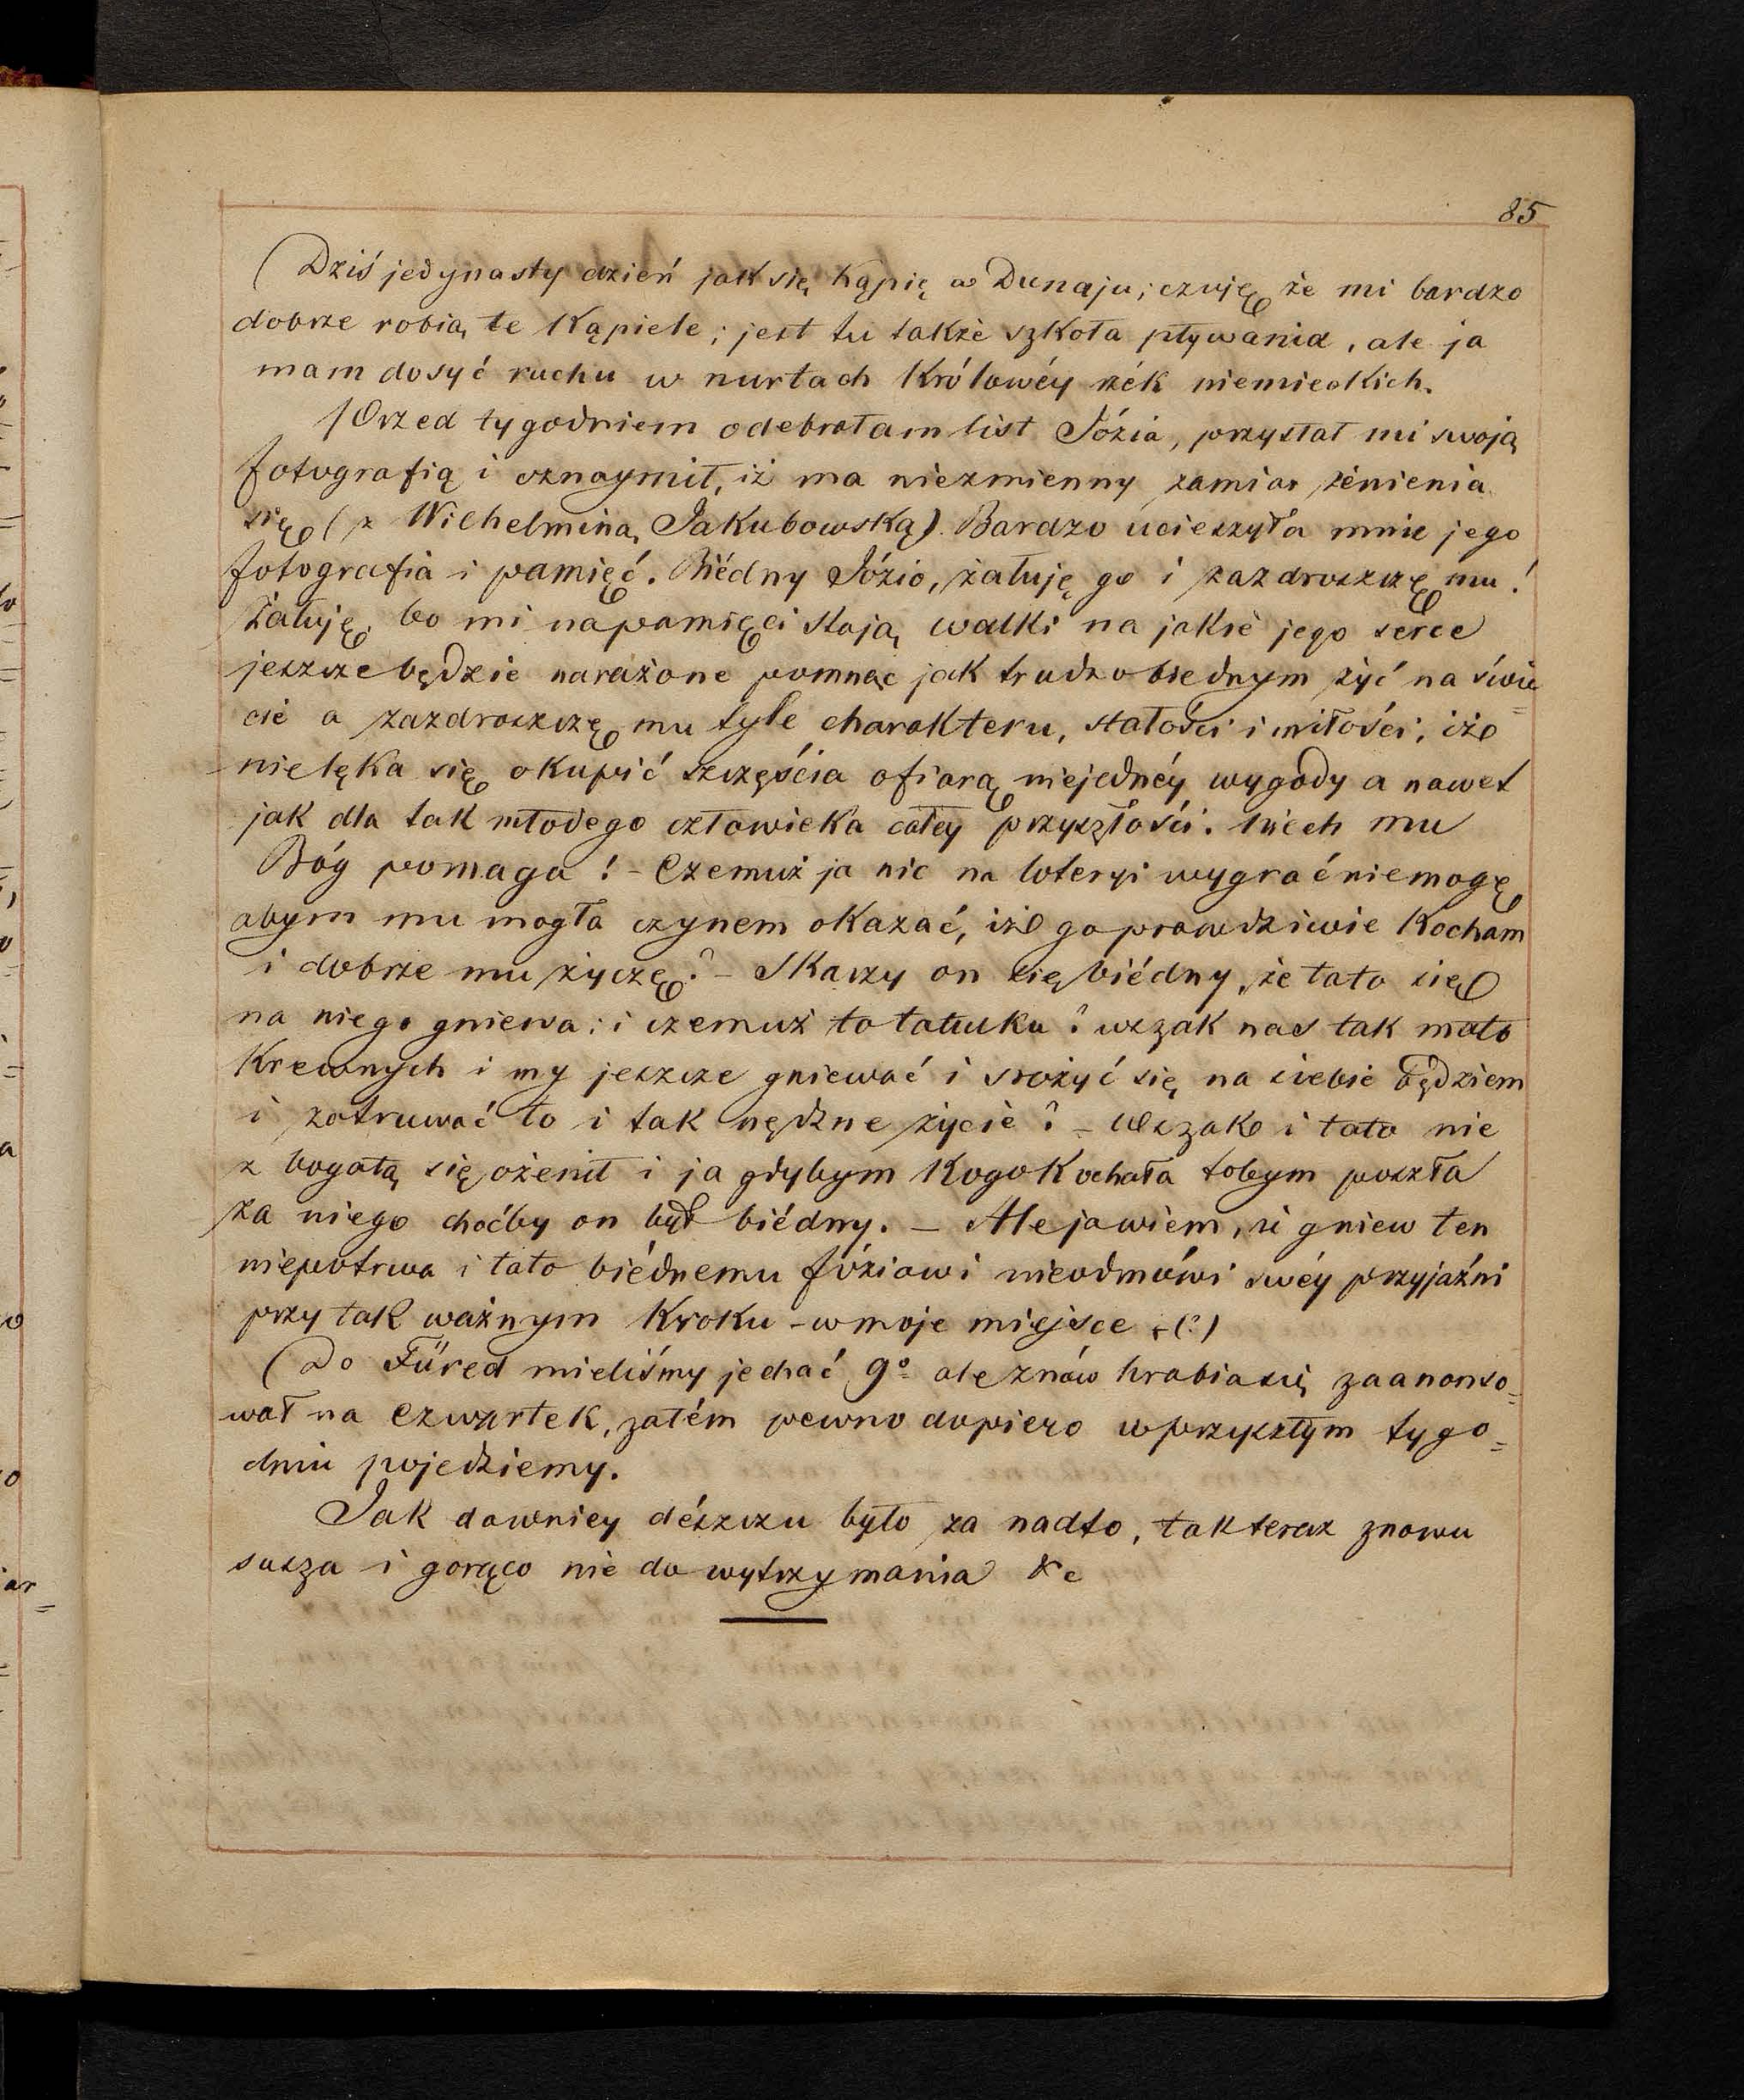 85
(Dziś jedynasty dzień jak się kąpię w Dunaju; czuję że mi bardzo
dobrze robią te kąpiele; jest tu także szkoła pływania, ale ja
mam dosyć ruchu w nurtach Królowéy rzék niemieckich.
Przed tygodniem odebrałam list Józia, przysłał mi swoją
fotografią i oznaymił, iż ma niezmienny zamiar żenienia
się (z Wilhelminą Jakubowską). Bardzo ucieszyła mnie jego
fotografia i pamięć. Biédny Józio, żałuję go i zazdroszczę mu!
Żałuję, bo mi na pamięci stoją walki na jakie jego serce
jeszcze będzie narażone pomnąc jak trudno biednym żyć na świe=
cie a zazdroszczę mu tyle charakteru, stałości i miłości, iże
nielęka się okupić szczęścia ofiarą niejednéy wygody a nawet
jak dla tak młodego człowieka całey przyszłości. Niech mu
Bóg pomaga! – Czemuż ja nic na loteryi wygrać niemogę
abym mu mogła czynem okazać, iże go prawdziwie kocham
i dobrze mu życzę? – Skarzy on się biédny, że tato się
na niego gniewa: i czemuż to tatulku? wszak nas tak mało
krewnych i my jeszcze gniewać i srożyć się na siebie będziem
i zatruwać to i tak nędzne życie? – Wszak i tato nie
z bogatą się ożenił i ja gdybym kogo kochała tobym poszła
za niego choćby on był biédny. – Ale ja wiem, iż gniew ten
niepotrwa i tato biédnemu Józiowi nieodmówi swéy przyjaźni
przy tak ważnym kroku – w moje miejsce (?)
(Do Füred mieliśmy jechać 9º ale znów hrabia się zaanonso=
wał na czwartek, zatém pewno dopiero w przyszłym tygo=
dniu pojedziemy.
Jak dawniey dészczu było za nadto, tak teraz znowu
susza i gorąco nie do wytrzymania &c